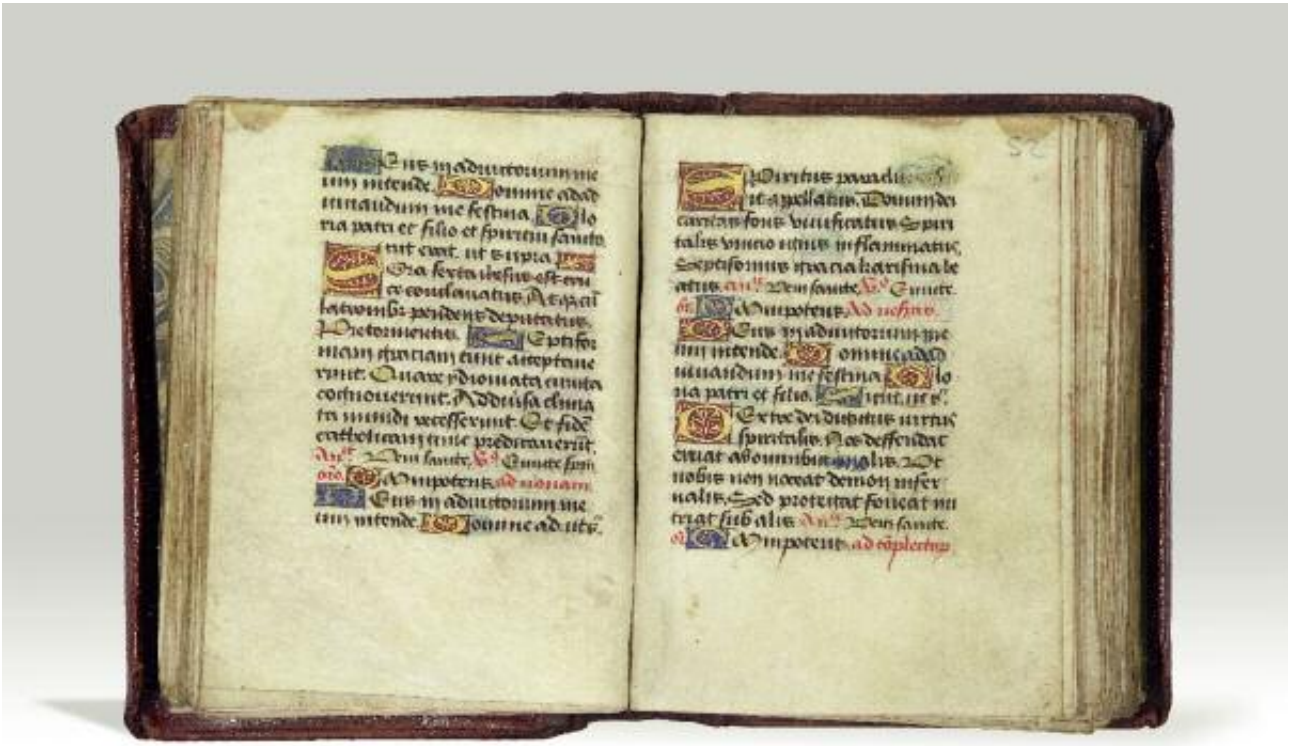 Deus in adiutorium me
um intende. Domine ad ad
iuuandum me festina. Glo
ria patri et filio et spiritui sancto.
Sicut erat. ut supra
Hora sexta ihesus est cru
ci conclauatus. Atqz cū
latronibz pendens deputatus.
Pretormentis. Septifor
mam graciam tunc acceptaue
runt. Quare ydiomata cuncta
cognouerunt. Ad diuersa clima
ta mundi recesserunt. Et fidē
catholicam tunc predicauerūt.
An. Veni sancte. V. Emitte spiri
oro. Omnipotens. ad nonam.
Deus in adiutorium me
um intende. Domine ad. ut s.
Spiritus paraclitus
uit appellatus. Donum dei
caritas fons viuificatus Spiri
talis vnccio inflammatus.
Septiformis gracia karisma be
atus. an. Veni sancte. V. Emitte.
or. Omnipotens. Ad vespas.
Deus in adiutorium me
um intende. Domine ad ad
iuuandum me festina Glo
ria patri et filio. Sicut. ut s.
Dextre dei digitus virtus
spiritalis. Nos deffendat
eruat ab omnibus malis. Vt
nobis non noceat demon infer
nalis. Sed protegat foueat nu
triat sub alis An. Veni sancte.
or. Omnipotens ad cōpletoriu
52